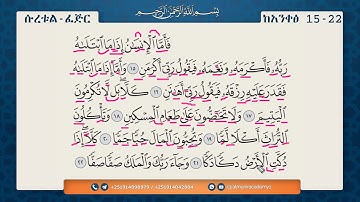 ሱረቱል-ፈጅር
بِسْمِ اللَّهِ الرَّحْمَنِ الرَّحِيمِ
ከአንቀፅ 15-22
فَأَمَّا الْإِنسَانُ إِذَا مَا ابْتَلَاهُ
رَبُّهُ فَأَكْرَمَهُ وَنَعَّمَهُ فَيَقُولُ رَبِّي أَكْرَمَنِ ١٥ وَأَمَّا إِذَا مَا ابْتَلَاهُ
فَقَدَرَ عَلَيْهِ رِزْقَهُ فَيَقُولُ رَبِّي أَهَانَنِ ١٦ كَلَّا بَل لَّا تُكْرِمُونَ
الْيَتِيمَ ١٧ وَلَا تَحَاضُّونَ عَلَى طَعَامِ الْمِسْكِينِ ١٨ وَتَأْكُلُونَ
التُّرَاثَ أَكْلًا لَّمًّا ١٩ وَتُحِبُّونَ الْمَالَ حُبًّا جَمًّا ٢٠ كَلَّا إِذَا
دُكَّتِ الْأَرْضُ دَكًّا دَكًّا ٢١ وَجَاءَ رَبُّكَ وَالْمَلَكُ صَفًّا صَفًّا ٢٢
+251914098979 / +251914042804